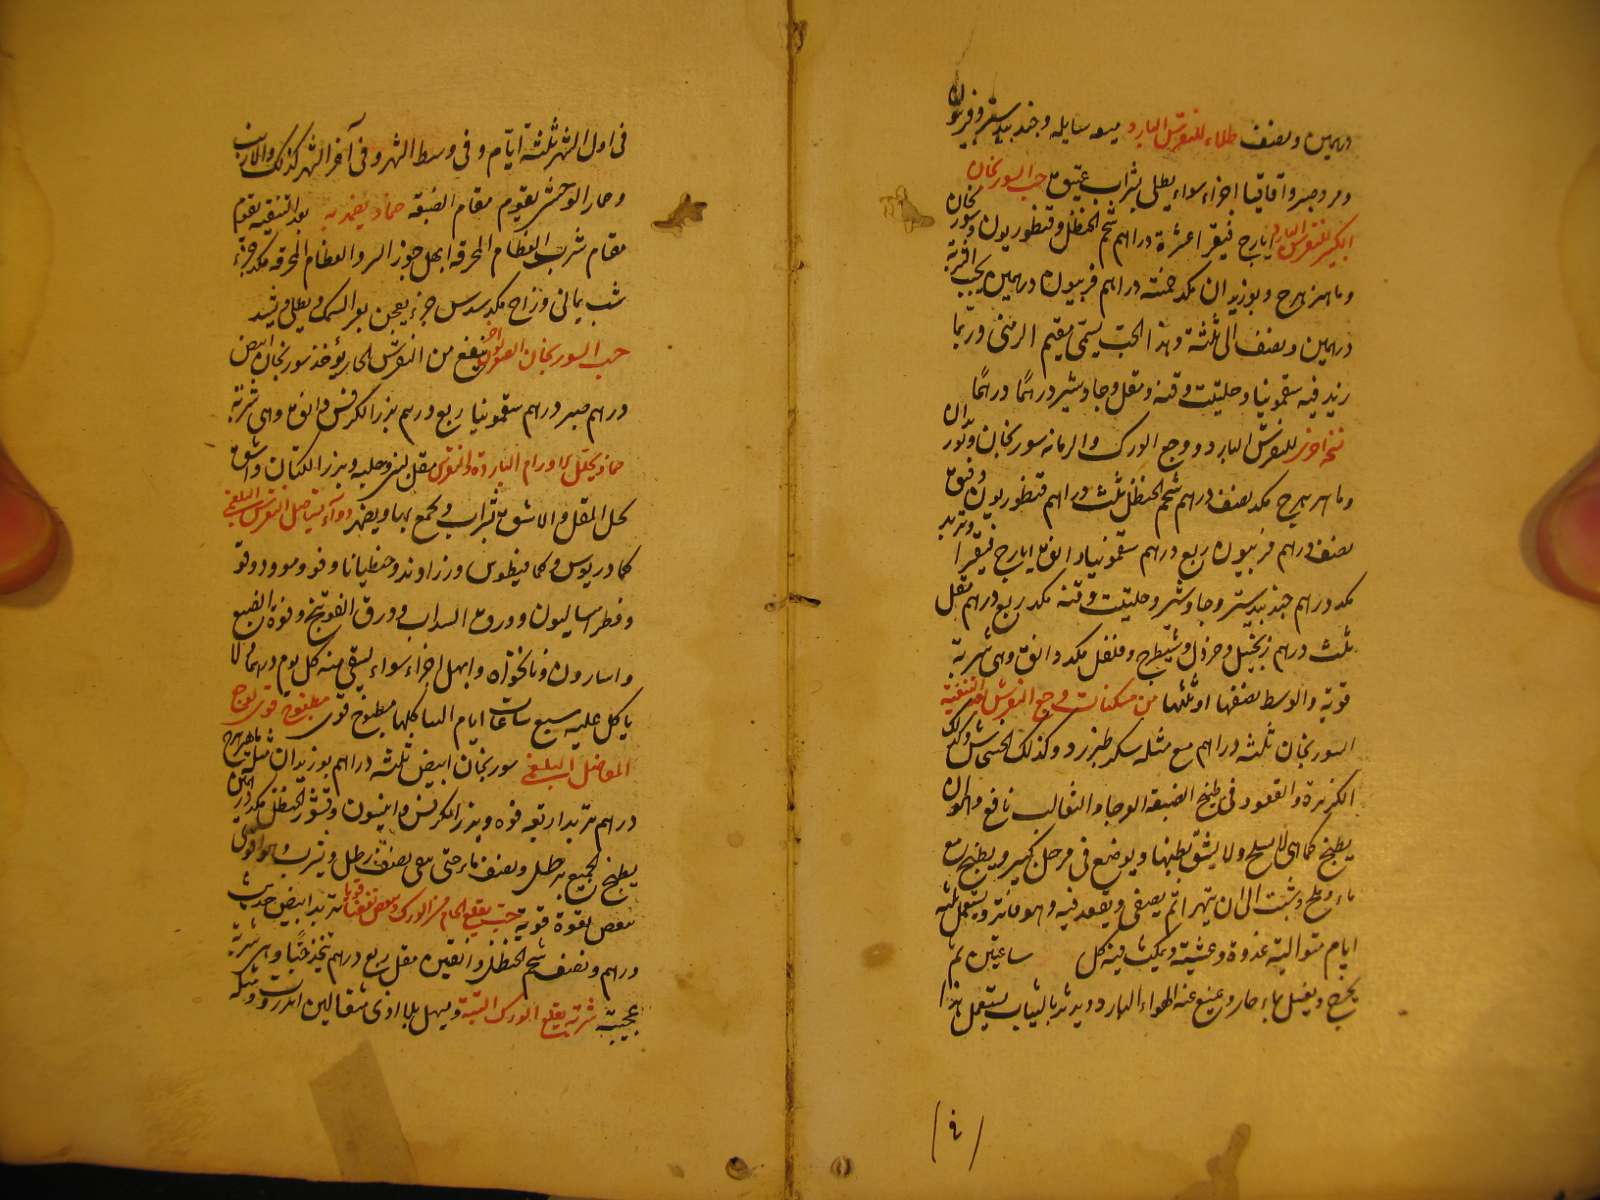 درهمين ونصف طلاء للنقرس البارد ميعه سايله وجندبيدستر وفربيون
ومر وصبر واقاقيا اجزاء سواء يطلى بشراب عتيق حب السورنجان
الكبير للنقرس البارد ايارج فيقرا عشرة دراهم شحم الحنظل وقنطوريون وسورنجان
وماهيزهرج وبوزيدان مكد خمسة دراهم فربيون درهمين يحبب الشربة
درهمين ونصف الى ثلثة وهذا الحب يسمى مقيم الزمنى وربما
زيد فيه سقمونيا وحلتيت وقنه ومقل وجاوشير درهمًا درهمًا
نسخة اخرى للنقرس البارد ووجع الورك والزمانه سورنجان وبوزيدان
وماهيزهرج مكد نصف درهم شحم الحنظل ثلث دراهم قنطوريون دقيق
نصف درهم فربيون ربع درهم سقمونيا دانق ايارج فيقرا وتربد
مكد درهم جندبيدستر وجاوشير وحلتيت وقنه مكد ربع درهم مقل
ثلث درهم زنجبيل وخردل وشيطرج وفلفل مكد دانق وهى شربة
قوية والوسط نصفها او ثلثها من مسكنات وجع النقرس بعد التنقية
السورنجان ثلثه دراهم مع مثله سكر طبرزد وكذلك الحشيش وكذلك
الكزبرة والقعود فى طبيخ الضبعه العرجا والثعالب نافع والحيوان
يطبخ كما هى لا يسلخ ولا يشق بطنها ويوضع فى مرجل كبير ويطبخ مع
ماء وملح وشبت الى ان يتهرا ثم يصفى ويقعد فيه وهو فاتر ويستعمل ثلثه
ايام متوالية غدوة وعشية ويمكث فيه كل ساعتين ثم
يخرج ويغسل بماء حار ويمنع عنه الهواء البارد ويدثر بالثياب يستعمل هذا
(٩)
فى اول الشهر ثلثة ايّام وفى وسط الشهر وفى آخر الشهر كذلك والارنب
وحار الوحش يقوم مقام الضبعه ضماد يضمد به بعد التنقيه يقوم
مقام شرب العظام المحرقه ابهل جوز السرو العظام المحرقه مكد جزء
شب يمانى وزاج مكد سدس جزء يعجن بغر السمك ويطلى ويشد
حب السورنجان الصغير اخر ينفع من النقرس الحار يؤخذ سورنجان ابيض
درهم صبر درهم سقمونيا ربع درهم بزر الكرفس دانق وهى شربة
ضماد يحلل الاورام البارده والنقرس مقل لبنى وحلبه وبزر الكتان واشق
يحل المقل والاشق بشراب ويجمع بها ويضمد دواء يستاصل النقرس البلغمى
كمادريوس وكمافيطوس وزراوند وجنطيانا وفو ومو ودوقو
وفطراساليون وورق السداب وورق الفوتنج وفوة الصبغ
واسارون ونانخواه وابهل اجزاء سواء يسقى منه كل يوم درهم لا
ياكل عليه سبع ساعات ايام السنا كلها مطبوخ قوى مطبوخ قوى لوجع
المفاصل البلغمى سورنجان ابيض ثلثه دراهم بوزيدان مثله ماهيزهرج
درهم تربد اربعه فوه وبزر الكرفس وانيسون وقشور الحنظل مكد درهمين
يطبخ الجميع برطل ونصف ماء حتى يبقى نصف رطل ويشرب وهو اقوى
بقوة قوية حب يقلع الخام من الورك تربد ابيض حديث
درهم ونصف شحم الحنظل دانقين مقل ربع درهم يتخذ حبًا وهى شربة
عجيبة شربه يقلع الورك البتة ويسهل بلا اذى مثقالين انزروت ومثله